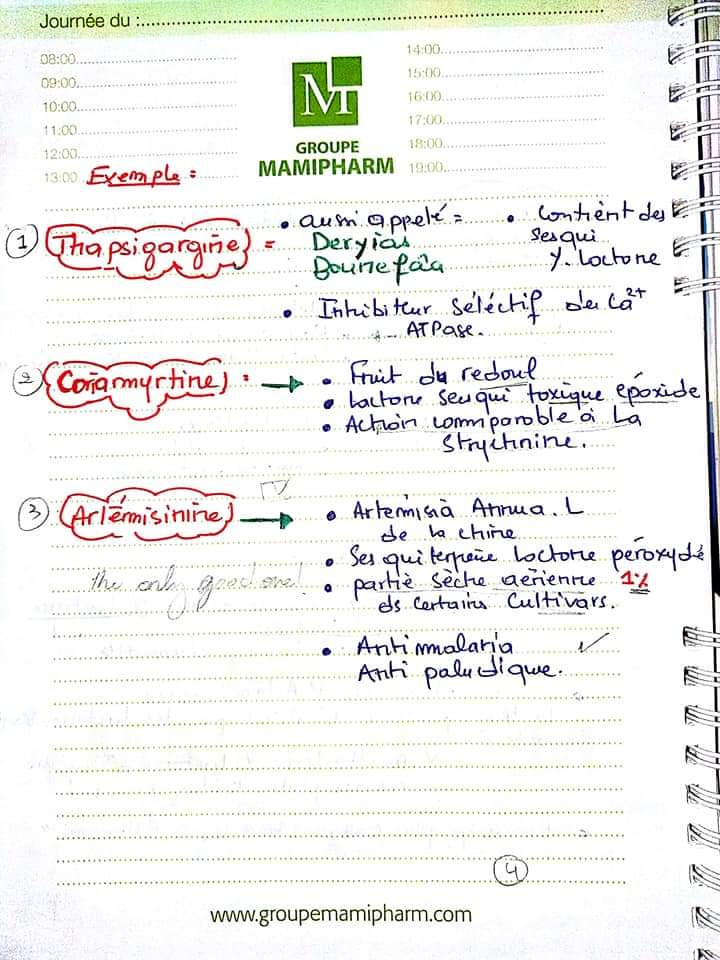 Journée du :
08:00
09:00
10:00
11:00
12:00
13:00
14:00
15:00
16:00
17:00
18:00
19:00
M
GROUPE
MAMIPHARM
Exemple :
1 Thapsigargine =
• aussi appelé =
Deryias
Bounefaa
• Contient des
sesqui
γ. lactone
• Inhibiteur séléctif de Ca2+
ATPase.
2 Coriamyrtine : →
• Fruit du redoul
• lactone sesqui toxique epóxide
• Action comparable à la
Strychnine.
3 Artémisinine →
• Artemisia Annua. L
de la chine
• Sesquiterpène lactone péroxydé
• partie sèche aérienne 1%
ds certains cultivars.
the only good one!
• Antimalaria
Anti paludique.
4
www.groupemamipharm.com